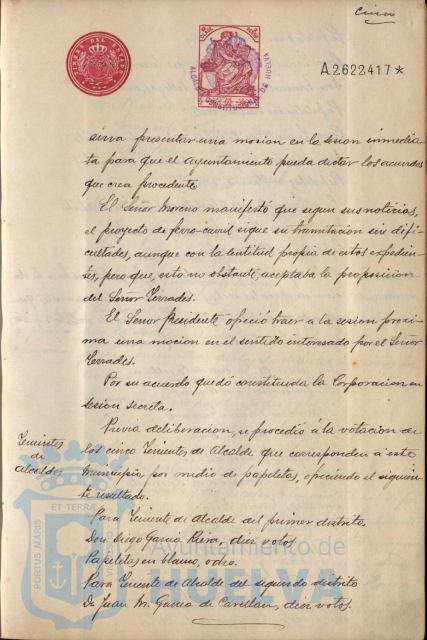 cinco
TIMBRE DEL ESTADO
ALCALDIA CONSTITUCIONAL DE HUELVA
A2622417*
sirva presentar una mocion en la sesion inmedia-
ta para que el Ayuntamiento pueda dictar los acuerdos
que crea procedente
El Señor Moreno manifestó que segun sus noticias,
el proyecto de ferro-carril sigue su tramitacion sin difi-
cultades, aunque con la lentitud propia de estos expedien-
tes, pero que, esto no obstante, aceptaba la proposicion
del Señor Terrades.
El Señor Presidente ofreció traer a la sesion proxi-
ma una mocion en el sentido interesado por el Señor
Terrades.
Por su acuerdo quedó constituida la Corporacion en
sesion secreta.
Tenientes
de
Alcaldes
Previa deliberacion, se procedió á la votacion de
los cinco Tenientes de Alcalde que corresponden a este
Municipio, por medio de papeletas, ofreciendo el siguien-
te resultado.
Para Teniente de Alcalde del primer distrito.
Don Diego Garcia Riera, diez votos
Papeletas en blanco, ocho.
Para Teniente de Alcalde del segundo distrito
D. Juan M. Garcia de Casellan, diez votos.
ET TERRA
PORTUS MARIS
Ayuntamiento de
HUELVA